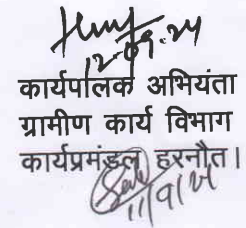 12-09-24
कार्यपालक अभियंता
ग्रामीण कार्य विभाग
कार्यप्रमंडल हरनौत।
11/9/24